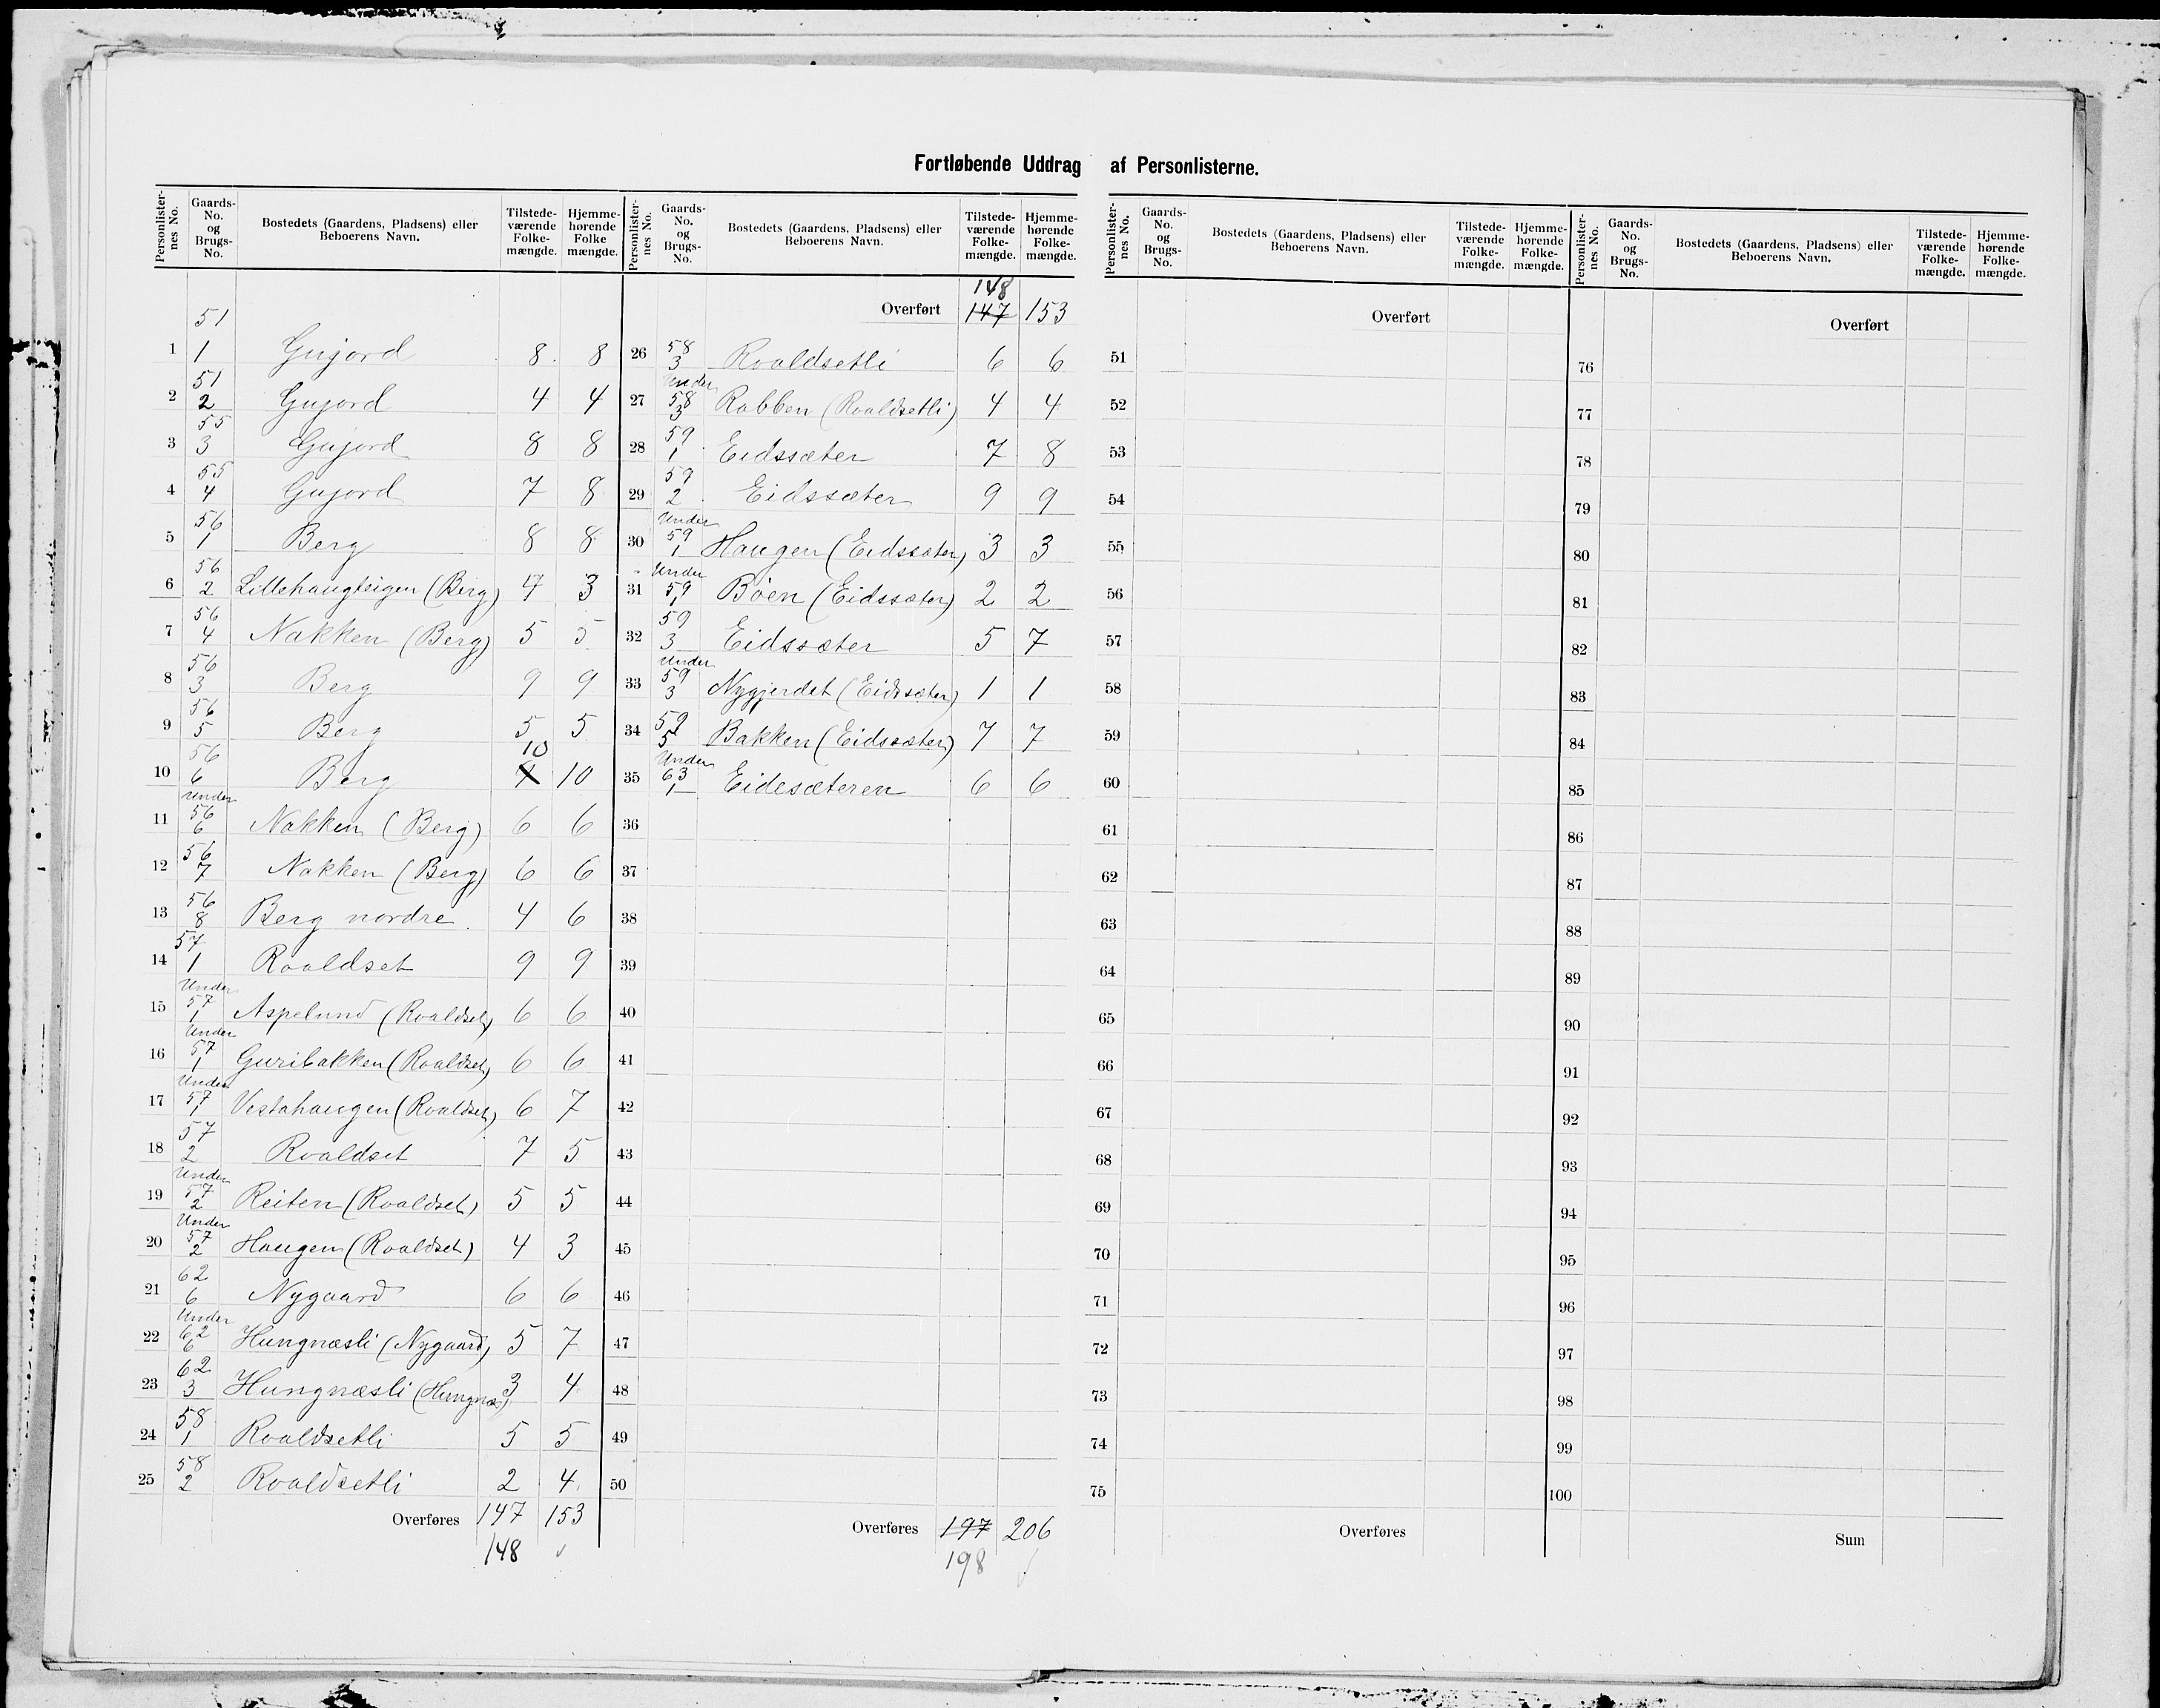 Fortløbende Uddrag af Personlisterne.
Personlisternes No. Gaards-No. og Brugs-No. Bostedets (Gaardens, Pladsens) eller Beboerens Navn. Tilstedeværende Folkemængde. Hjemmehørende Folkemængde.
1 51 1 Gujord 8 8
2 51 2 Gujord 4 4
3 55 3 Gujord 8 8
4 55 4 Gujord 7 8
5 56 1 Berg 8 8
6 56 2 Lillehaugteigen (Berg) 4 3
7 56 4 Nakken (Berg) 5 5
8 56 3 Berg 9 9
9 56 5 Berg 5 5
10 56 6 Berg 10 10
11 Under 56 6 Nakken (Berg) 6 6
12 56 7 Nakken (Berg) 6 6
13 56 8 Berg nordre 4 6
14 57 1 Roaldset 9 9
15 Under 57 1 Aspelund (Roaldset) 6 6
16 Under 57 1 Guribakken (Roaldset) 6 6
17 Under 57 1 Vestahaugen (Roaldset) 6 7
18 57 2 Roaldset 7 5
19 Under 57 2 Reiten (Roaldset) 5 5
20 Under 57 2 Haugen (Roaldset) 4 3
21 62 6 Nygaard 6 6
22 Under 62 6 Hungnæsli (Nygaard) 5 7
23 62 3 Hungnæsli (Hungnæs) 3 4
24 58 1 Roaldsetli 5 5
25 58 2 Roaldsetli 2 4
Overføres 147 153
148
Personlisternes No. Gaards-No. og Brugs-No. Bostedets (Gaardens, Pladsens) eller Beboerens Navn. Tilstedeværende Folkemængde. Hjemmehørende Folkemængde.
148
Overført 147 153
26 58 3 Roaldsetli 6 6
27 Under 58 3 Rabben (Roaldsetli) 4 4
28 59 1 Eidssæter 7 8
29 59 2 Eidssæter 9 9
30 Under 59 1 Haugen (Eidssæter) 3 3
31 Under 59 1 Böen (Eidssæter) 2 2
32 59 3 Eidssæter 5 7
33 Under 59 3 Nygjerdet (Eidssæter) 1 1
34 59 5 Bakken (Eidssæter) 7 7
35 Under 63 1 Eidesæteren 6 6
36
37
38
39
40
41
42
43
44
45
46
47
48
49
50
Overføres 197 206
198
Personlisternes No. Gaards-No. og Brugs-No. Bostedets (Gaardens, Pladsens) eller Beboerens Navn. Tilstedeværende Folkemængde. Hjemmehørende Folkemængde.
Overført
51
52
53
54
55
56
57
58
59
60
61
62
63
64
65
66
67
68
69
70
71
72
73
74
75
Overføres
Personlisternes No. Gaards-No. og Brugs-No. Bostedets (Gaardens, Pladsens) eller Beboerens Navn. Tilstedeværende Folkemængde. Hjemmehørende Folkemængde.
Overført
76
77
78
79
80
81
82
83
84
85
86
87
88
89
90
91
92
93
94
95
96
97
98
99
100
Sum